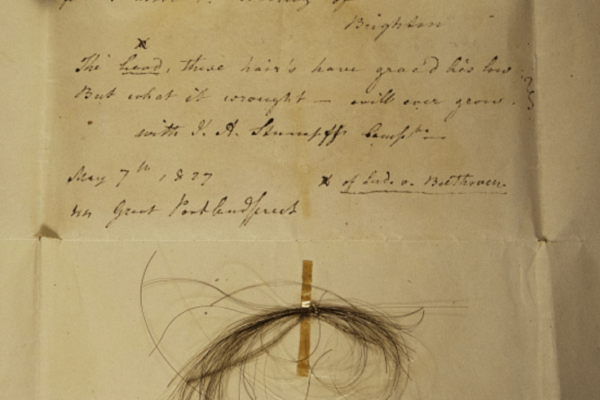 of
Brighton
x
The head, these hair's have grac'd lies low
But what it wrought — will ever grow.
with J. A. Stumpff's Compts
May 7th, 1827
x of Lud. v. Beethoven.
Great Portland Street